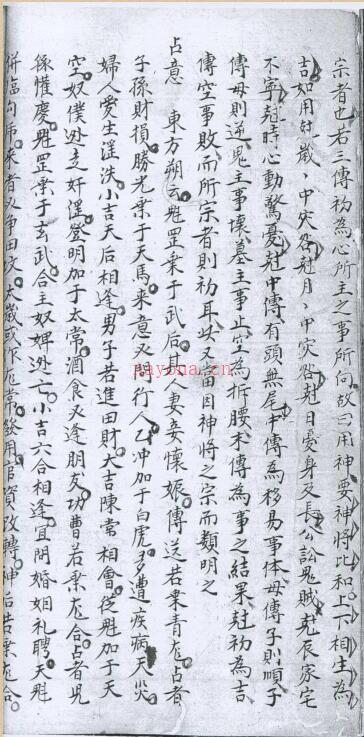 宗者也若三傳初為心所主之事所向故曰用神要神將比和上下相生為
吉如用尅歲、中灾及尅月、中灾咎尅日妻身及長公訟鬼賊尅辰家宅
不寧尅時心動驚憂尅中傳有頭無尾中傳為移易事体母傳子則順子
傳母則逆鬼主事壞墓主事止空為折腰末傳為事之結果尅初為吉
傳空事敗而所宗者則初耳此又當因神將之宗而類明之
占意 東方朔云魁罡乗于武后其人妻妾懷娠傳送若乗青尨占者
子孫財損勝光乗于天馬来意又問行人乙冲加于白虎多遭疾病天灾
婦人愛生滛泆小吉天后相逢男子若進田財大吉陳常相會從魁加于天
空奴僕逃走奸滛登明加于太常酒食又逢朋友功曹若乗尨合占者児
孫懽慶魁罡乗于玄武合主奴婢逃亡小吉六合相逢宜問婚姻礼聘天魁
併臨勾乕来者又争田攻太歲或作尨常發用官資改轉神后若乗尨合
payona.cn